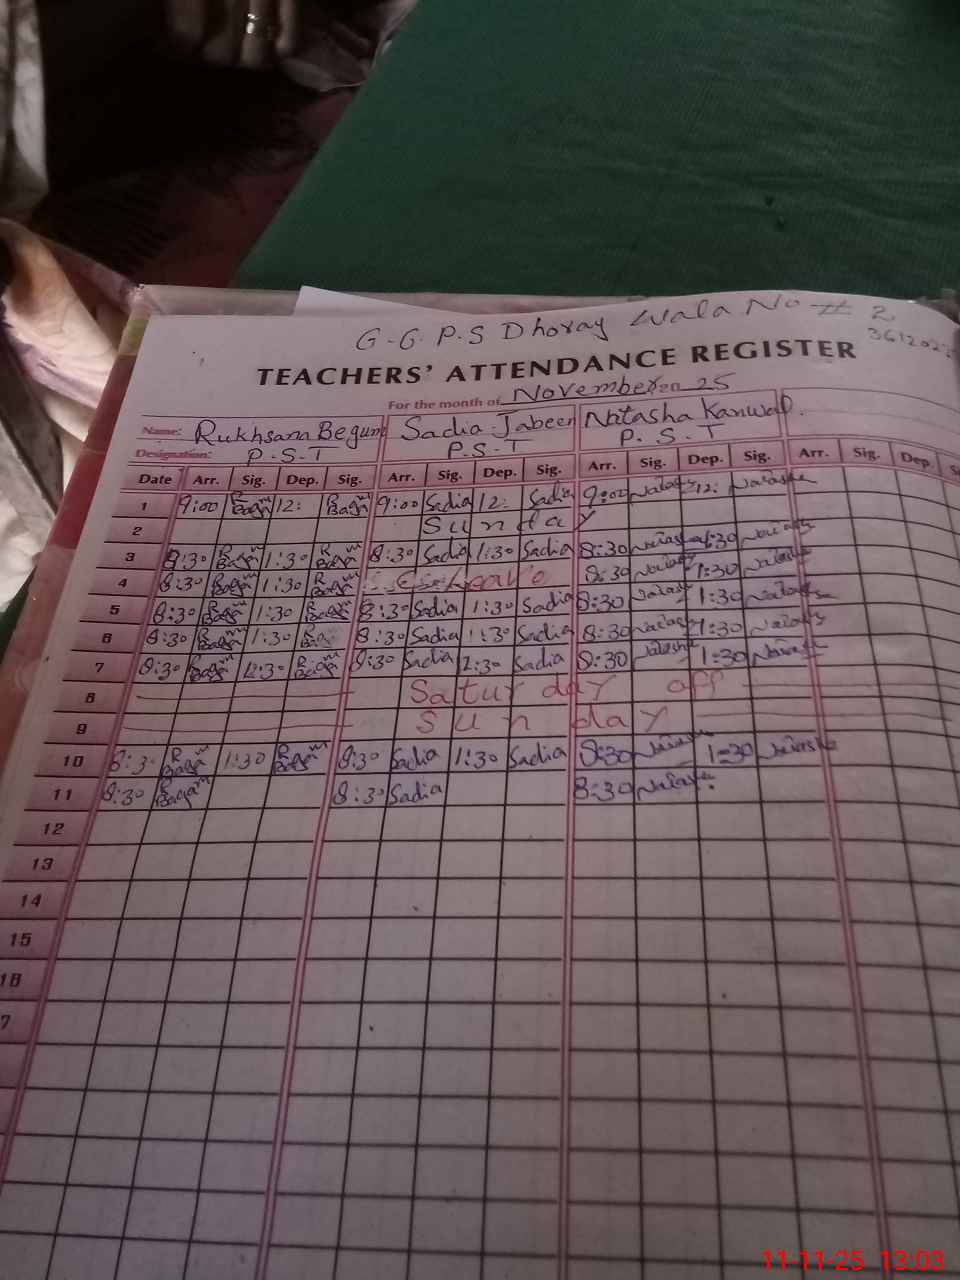 G.G.P.S Dhoray Wala No # 2
TEACHERS' ATTENDANCE REGISTER
For the month of November 20 25
Name: Rukhsana Begum Sadia Jabeen Natasha Kanwal.
Designation: P.S.T P.S.T P.S.T
Date Arr. Sig. Dep. Sig. Arr. Sig. Dep. Sig. Arr. Sig. Dep. Sig. Arr. Sig. Dep.
1 9:00 12: 9:00 Sadia 12: Sadia 9:00 Natasha 12: Natasha
2 Sunday
3 8:30 1:30 8:30 Sadia 1:30 Sadia 8:30 Natasha 1:30 Natasha
4 8:30 1:30 Leave 8:30 Natasha 1:30 Natasha
5 8:30 1:30 8:30 Sadia 1:30 Sadia 8:30 Natasha 1:30 Natasha
6 8:30 1:30 8:30 Sadia 1:30 Sadia 8:30 Natasha 1:30 Natasha
7 8:30 8:30 Sadia 12:30 Sadia 8:30 Natasha 1:30 Natasha
8 Saturday off
9 Sunday
10 8:3 1:30 8:30 Sadia 1:30 Sadia 8:30 Natasha 1:30 Natasha
11 8:30 8:30 Sadia 8:30 Natasha
12
13
14
15
16
7
11-11-25 13:03